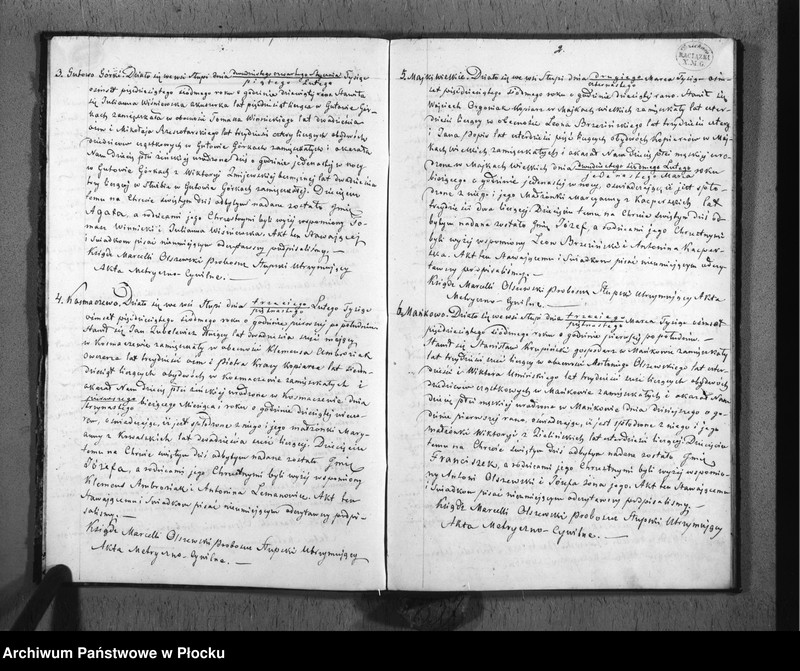 3. Gutowo Górki. Działo się we wsi Słupi dnia dwudziestego czwartego Stycznia / piątego Lutego Tysiąc
ośmset pięćdziesiątego siódmego roku o godzinie dziewiątej rano Stawiła
się Julianna Wiśniewska akuszerka lat pięćdziesiąt licząca w Gutowie Gór-
kach zamieszkała w obecności Tomasza Winnickiego lat dwadzieścia
ośm i Mikołaja lat trzydzieści cztery liczących obydwóch
dziedziców cząstkowych w Gutowie Górkach zamieszkałych i okazała
Nam dziecię płci żeńskiej urodzone dziś o godzinie jedenastej w nocy
w Gutowie Górkach z Wiktoryi Żmijewskiej bezmężnej lat dwadzieścia
trzy liczącej w Służbie w Gutowie Górkach zamieszkałej. Dziecięciu
temu na Chrzcie świętym dziś odbytym nadane zostało Imię
Agata, a rodzicami jego Chrzestnymi byli wyżej wspomniony To-
masz Winnicki i Julianna Wiśniewska, Akt ten Stawającej
i Świadkom pisać nieumiejącym odczytawszy podpisaliśmy. —
Ksiądz Marcelli Olszewski Proboszcz Słupski Utrzymujący
Akta Metryczno-Cywilne. —
4. Kosmaczewo. Działo się we wsi Słupi dnia trzeciego / piętnastego Lutego Tysiąc
ośmset pięćdziesiątego siódmego roku o godzinie pierwszej po południu
Stawił się Jan liczący lat dwadzieścia sześć mający,
w Kosmaczewie zamieszkały w obecności Klemensa
Owczarza lat trzydzieści ośm i Piotra Krasy Kopiarza lat siedm-
dziesiąt liczących obydwóch w Kosmaczewie zamieszkałych i
okazał Nam dziecię płci żeńskiej urodzone w Kosmaczewie dnia
pierwszego / trzynastego bieżącego Miesiąca, roku o godzinie dziesiątej wieczo-
rem, oświadczając, iż jest spłodzone z niego i jego małżonki Mary-
anny z Kowalskich lat dwadzieścia sześć liczącej. Dziecięciu
temu na Chrzcie świętym dziś odbytym nadane zostało Imię
Józefa, a rodzicami jego Chrzestnymi byli wyżej wspomniony
Klemens Ambroziak i Antonina Lemanowicz. Akt ten
Stawającemu i Świadkom pisać nieumiejącym odczytawszy podpi-
saliśmy. —
Ksiądz Marcelli Olszewski Proboszcz Słupski Utrzymujący
Akta Metryczno-Cywilne. —
3.
5. Majki wielkie. Działo się we wsi Słupi dnia drugiego / czternastego Marca Tysiąc ośm-
set pięćdziesiątego siódmego roku o godzinie dziesiątej rano. Stawił się
Wojciech Kopiarz w Majkach wielkich zamieszkały lat czter-
dzieści liczący w obecności Leona Brzezińskiego lat trzydzieści cztery
i Jana lat czterdzieści pięć liczących obydwóch Kopiarzów w Maj-
kach wielkich zamieszkałych i okazał Nam dziecię płci męskiej uro-
dzone w Majkach Wielkich dnia dwudziestego siódmego Lutego / jedenastego Marca roku
bieżącego o godzinie jedenastej w nocy, oświadczając, iż jest spło-
dzone z niego i jego Małżonki Maryanny z Kacperskich lat
trzydzieści dwa liczącej. Dziecięciu temu na Chrzcie świętym dziś od-
bytym nadane zostało Imię Józef, a rodzicami jego Chrzestnymi
byli wyżej wspomniony Leon Brzeziński i Antonina Kacper-
ska. Akt ten Stawającemu i Świadkom pisać nieumiejącym odczy-
tawszy podpisaliśmy. —
Ksiądz Marcelli Olszewski Proboszcz Słupski Utrzymujący Akta
Metryczno-Cywilne. —
6. Mańkowo. Działo się we wsi Słupi dnia trzeciego / piętnastego Marca Tysiąc ośmset
pięćdziesiątego siódmego roku o godzinie pierwszej po południu.
Stawił się Stanisław Krupiński gospodarz w Mańkowie zamieszkały
lat trzydzieści sześć liczący w obecności Antoniego Olszewskiego lat czter-
dzieści i Wiktora Umińskiego lat trzydzieści sześć liczących obydwóch
dziedziców cząstkowych w Mańkowie zamieszkałych i okazał Nam
dziecię płci męskiej urodzone w Mańkowie dnia dzisiejszego o go-
dzinie pierwszej rano, oświadczając, iż jest spłodzone z niego i jego
małżonki Wiktoryi z Zielińskich lat trzydzieści liczącej. Dziecięciu
temu na Chrzcie świętym dziś odbytym nadane zostało Imię
Franciszek, a rodzicami jego Chrzestnymi byli wyżej wspomnio-
ny Antoni Olszewski i Józefa żona jego. Akt ten Stawającemu
i Świadkom pisać nieumiejącym odczytawszy podpisaliśmy. —
Ksiądz Marcelli Olszewski Proboszcz Słupski Utrzymujący
Akta Metryczno-Cywilne. —
Archiwum Państwowe w Płocku